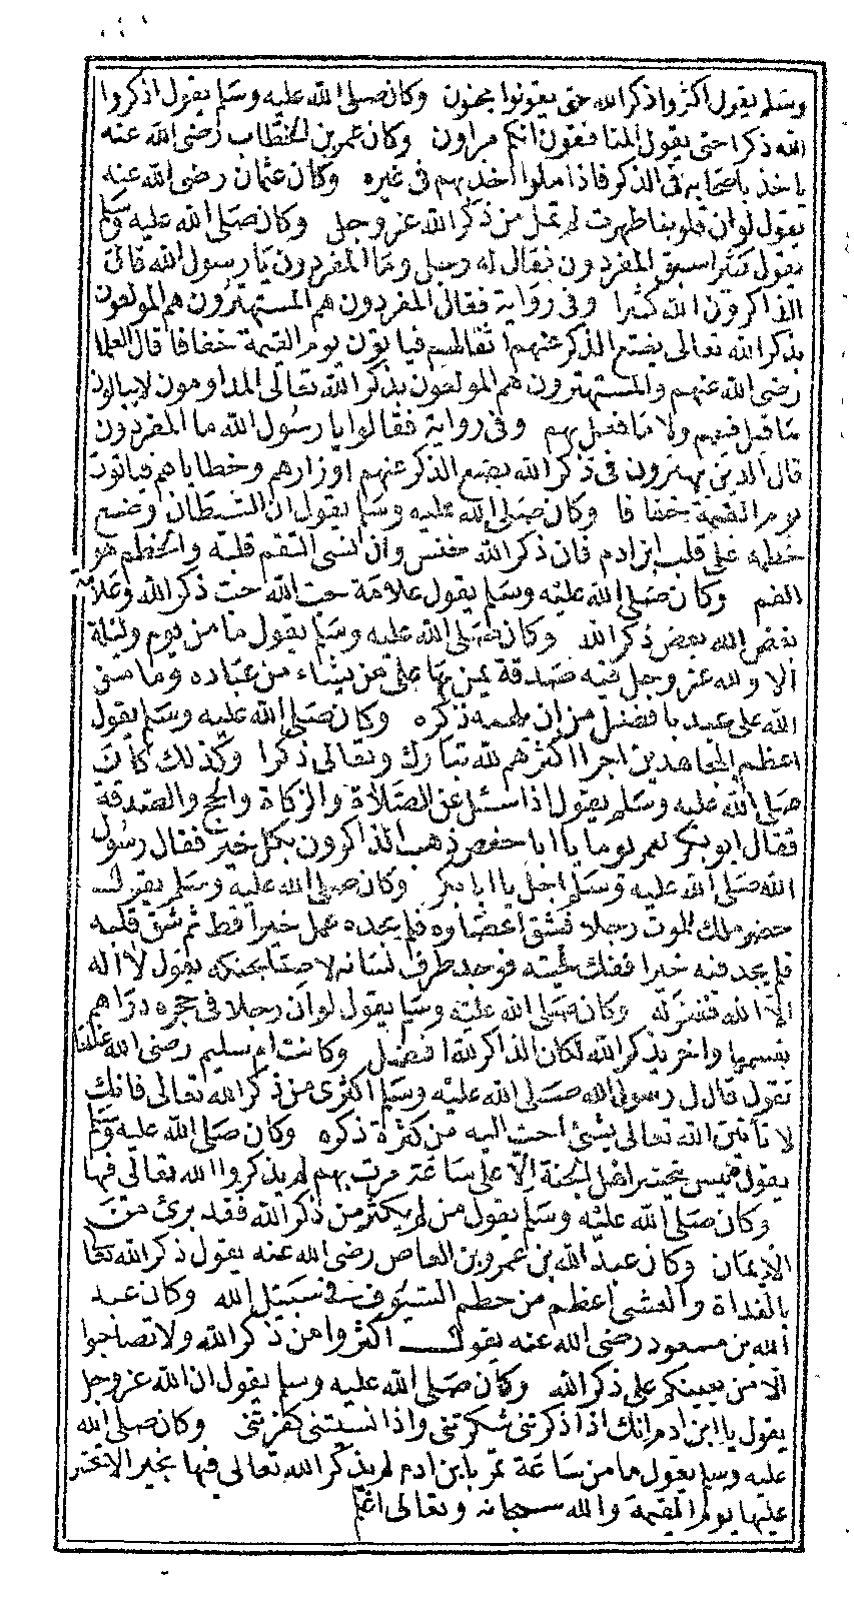 وسلم يقول اكثروا ذكر الله حتى يقولوا مجنون وكان صلى الله عليه وسلم يقول اذكروا
الله ذكرا حتى يقول المنافقون انكم مراون وكان عمر بن الخطاب رضى الله عنه
ياخذ باصحابه فى الذكر فاذا ملوا اخذ بهم فى غيره وكان عثمان رضى الله عنه
يقول لو ان قلوبنا طهرت لم تمل من ذكر الله عز وجل وكان صلى الله عليه وسلم
يقول كثيرا سبق المفردون فقال له رجل وما المفردون يا رسول الله قال
الذاكرون الله كثيرا وفى رواية فقال المفردون هم المستهترون هم المولعون
بذكر الله تعالى يضع الذكر عنهم اثقالهم فياتون يوم القيمة خفافا قال العلما
رضى الله عنهم والمستهترون هم المولعون بذكر الله تعالى المداومون لا يبالون
ما قيل فيهم ولا ما فعل بهم وفى رواية فقالوا يا رسول الله ما المفردون
قال الذين يهترون فى ذكر الله يضع الذكر عنهم اوزارهم وخطاياهم فياتون
يوم القيمة خفافا وكان صلى الله عليه وسلم يقول ان الشيطان وضع
خطمه على قلب ابن ادم فان ذكر الله خنس وان نسى التقم قلبه والخطم هو
الفم وكان صلى الله عليه وسلم يقول علامة حب الله حب ذكر الله وعلامة
بغض الله بغض ذكر الله وكان صلى الله عليه وسلم يقول ما من يوم وليلة
الا ولله عز وجل فيه صدقة يمن بها على من يشاء من عباده وما من
الله على عبد بافضل من ان يلهمه ذكره وكان صلى الله عليه وسلم يقول
اعظم المجاهدين اجرا اكثرهم لله تبارك وتعالى ذكرا وكذلك كان
صلى الله عليه وسلم يقول اذا سئل عن الصلاة والزكاة والحج والصدقة
فقال ابو بكر لعمر يوما يا ابا حفص ذهب الذاكرون بكل خير فقال رسول
الله صلى الله عليه وسلم اجل يا ابا بكر وكان صلى الله عليه وسلم يقول
حضر ملك الموت رجلا فشق اعضاوه فلم يجده عمل خيرا قط ثم شق قلبه
فلم يجد فيه خيرا ففك لحيته فوجد طرف لسانه لاصقا بحنكه يقول لا اله
الا الله فغفر له وكان صلى الله عليه وسلم يقول لو ان رجلا فى حجره دراهم
يقسمها واخر يذكر الله لكان الذاكر لله افضل وكانت ام سليم رضى الله عنها
تقول قال لى رسول الله صلى الله عليه وسلم اكثرى من ذكر الله تعالى فانك
لا تاتين الله تعالى بشئ احب اليه من كثرة ذكره وكان صلى الله عليه وسلم
يقول ليس يتحسر اهل الجنة الا على ساعة مرت بهم لم يذكروا الله تعالى فيها
وكان صلى الله عليه وسلم يقول من لم يكثر من ذكر الله فقد برئ من
الايمان وكان عبد الله بن عمرو بن العاص رضى الله عنه يقول ذكر الله تعا
بالغداة والعشى اعظم من حطم السيوف فى سبيل الله وكان عبد
الله بن مسعود رضى الله عنه يقول اكثروا من ذكر الله ولا تصاحبوا
الا من يعينكم على ذكر الله وكان صلى الله عليه وسلم يقول ان الله عز وجل
يقول يا ابن ادم انك اذا ذكرتنى شكرتنى واذا نسيتنى كفرتنى وكان صلى الله
عليه وسلم يقول ما من ساعة تمر بابن ادم لم يذكر الله تعالى فيها بخير الا تحسر
عليها يوم القيمة والله سبحانه وتعالى اعلم